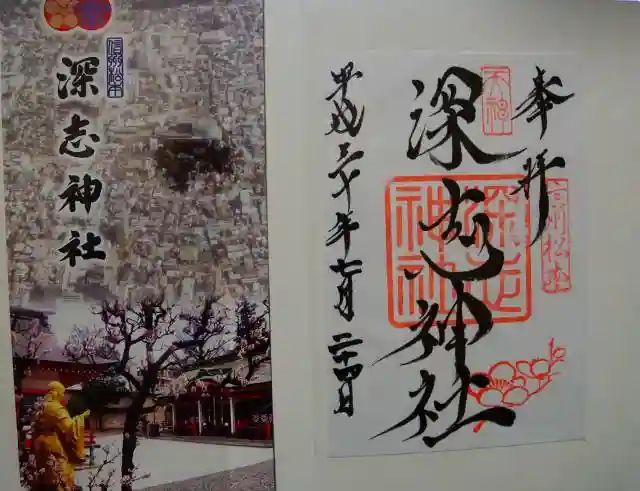 奉拝
天神
信州松本
深志神社
深志神社
平成三十年七月二十四日
信州松本
深志神社